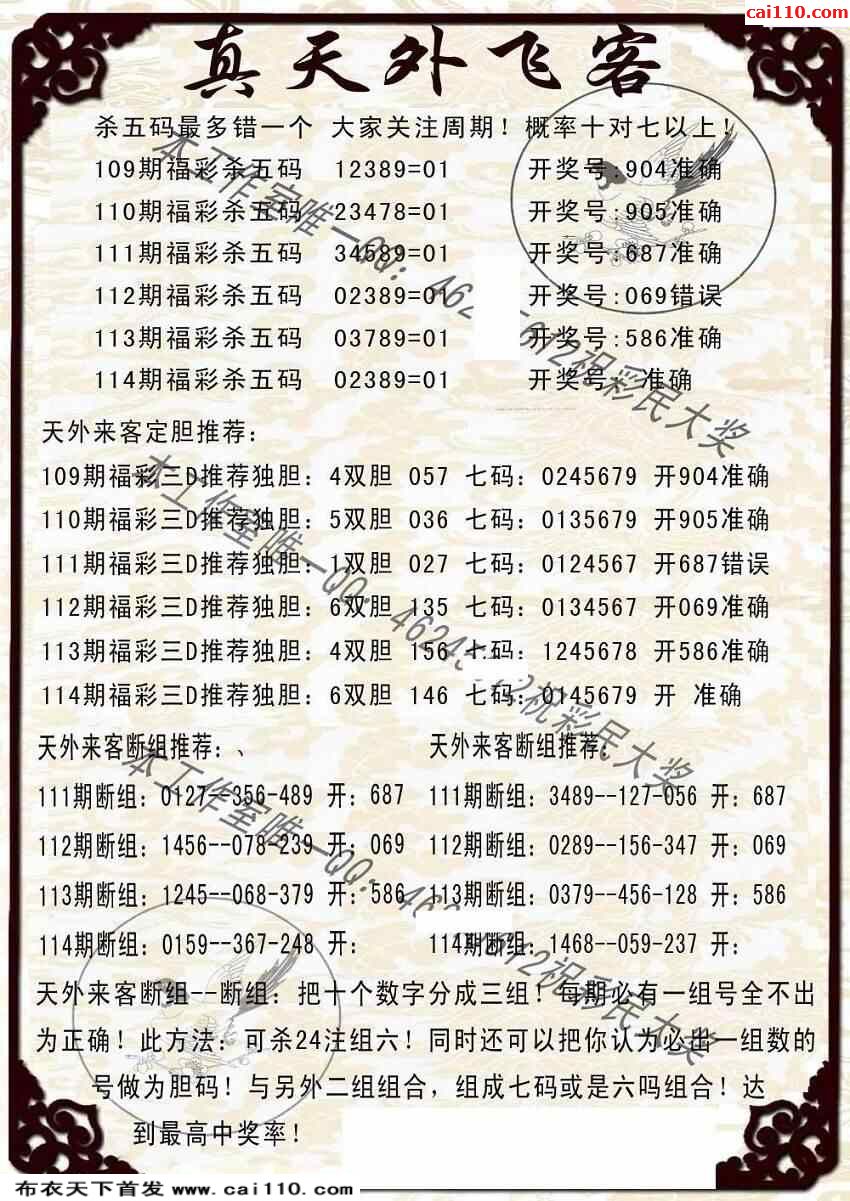 cai110.com
真天外飞客
杀五码最多错一个 大家关注周期！概率十对七以上！
109期福彩杀五码 12389=01 开奖号:904准确
110期福彩杀五码 23478=01 开奖号:905准确
111期福彩杀五码 34589=01 开奖号:687准确
112期福彩杀五码 02389=01 开奖号:069错误
113期福彩杀五码 03789=01 开奖号:586准确
114期福彩杀五码 02389=01 开奖号: 准确
天外来客定胆推荐：
109期福彩三D推荐独胆：4双胆 057 七码：0245679 开904准确
110期福彩三D推荐独胆：5双胆 036 七码：0135679 开905准确
111期福彩三D推荐独胆：1双胆 027 七码：0124567 开687错误
112期福彩三D推荐独胆：6双胆 135 七码：0134567 开069准确
113期福彩三D推荐独胆：4双胆 156 七码：1245678 开586准确
114期福彩三D推荐独胆：6双胆 146 七码：0145679 开 准确
天外来客断组推荐：、 天外来客断组推荐：
111期断组：0127--356-489 开：687 111期断组：3489--127-056 开：687
112期断组：1456--078-239 开：069 112期断组：0289--156-347 开：069
113期断组：1245--068-379 开：586 113期断组：0379--456-128 开：586
114期断组：0159--367-248 开： 114期断组：1468--059-237 开：
天外来客断组--断组：把十个数字分成三组！每期必有一组号全不出
为正确！此方法：可杀24注组六！同时还可以把你认为必出一组数的
号做为胆码！与另外二组组合，组成七码或是六吗组合！达
到最高中奖率！
本工作室唯一QQ：462 612祝彩民大奖
本工作室唯一QQ：46245 2祝彩民大奖
本工作室唯一QQ：462 612祝彩民大奖
布衣天下首发 www.cai110.com